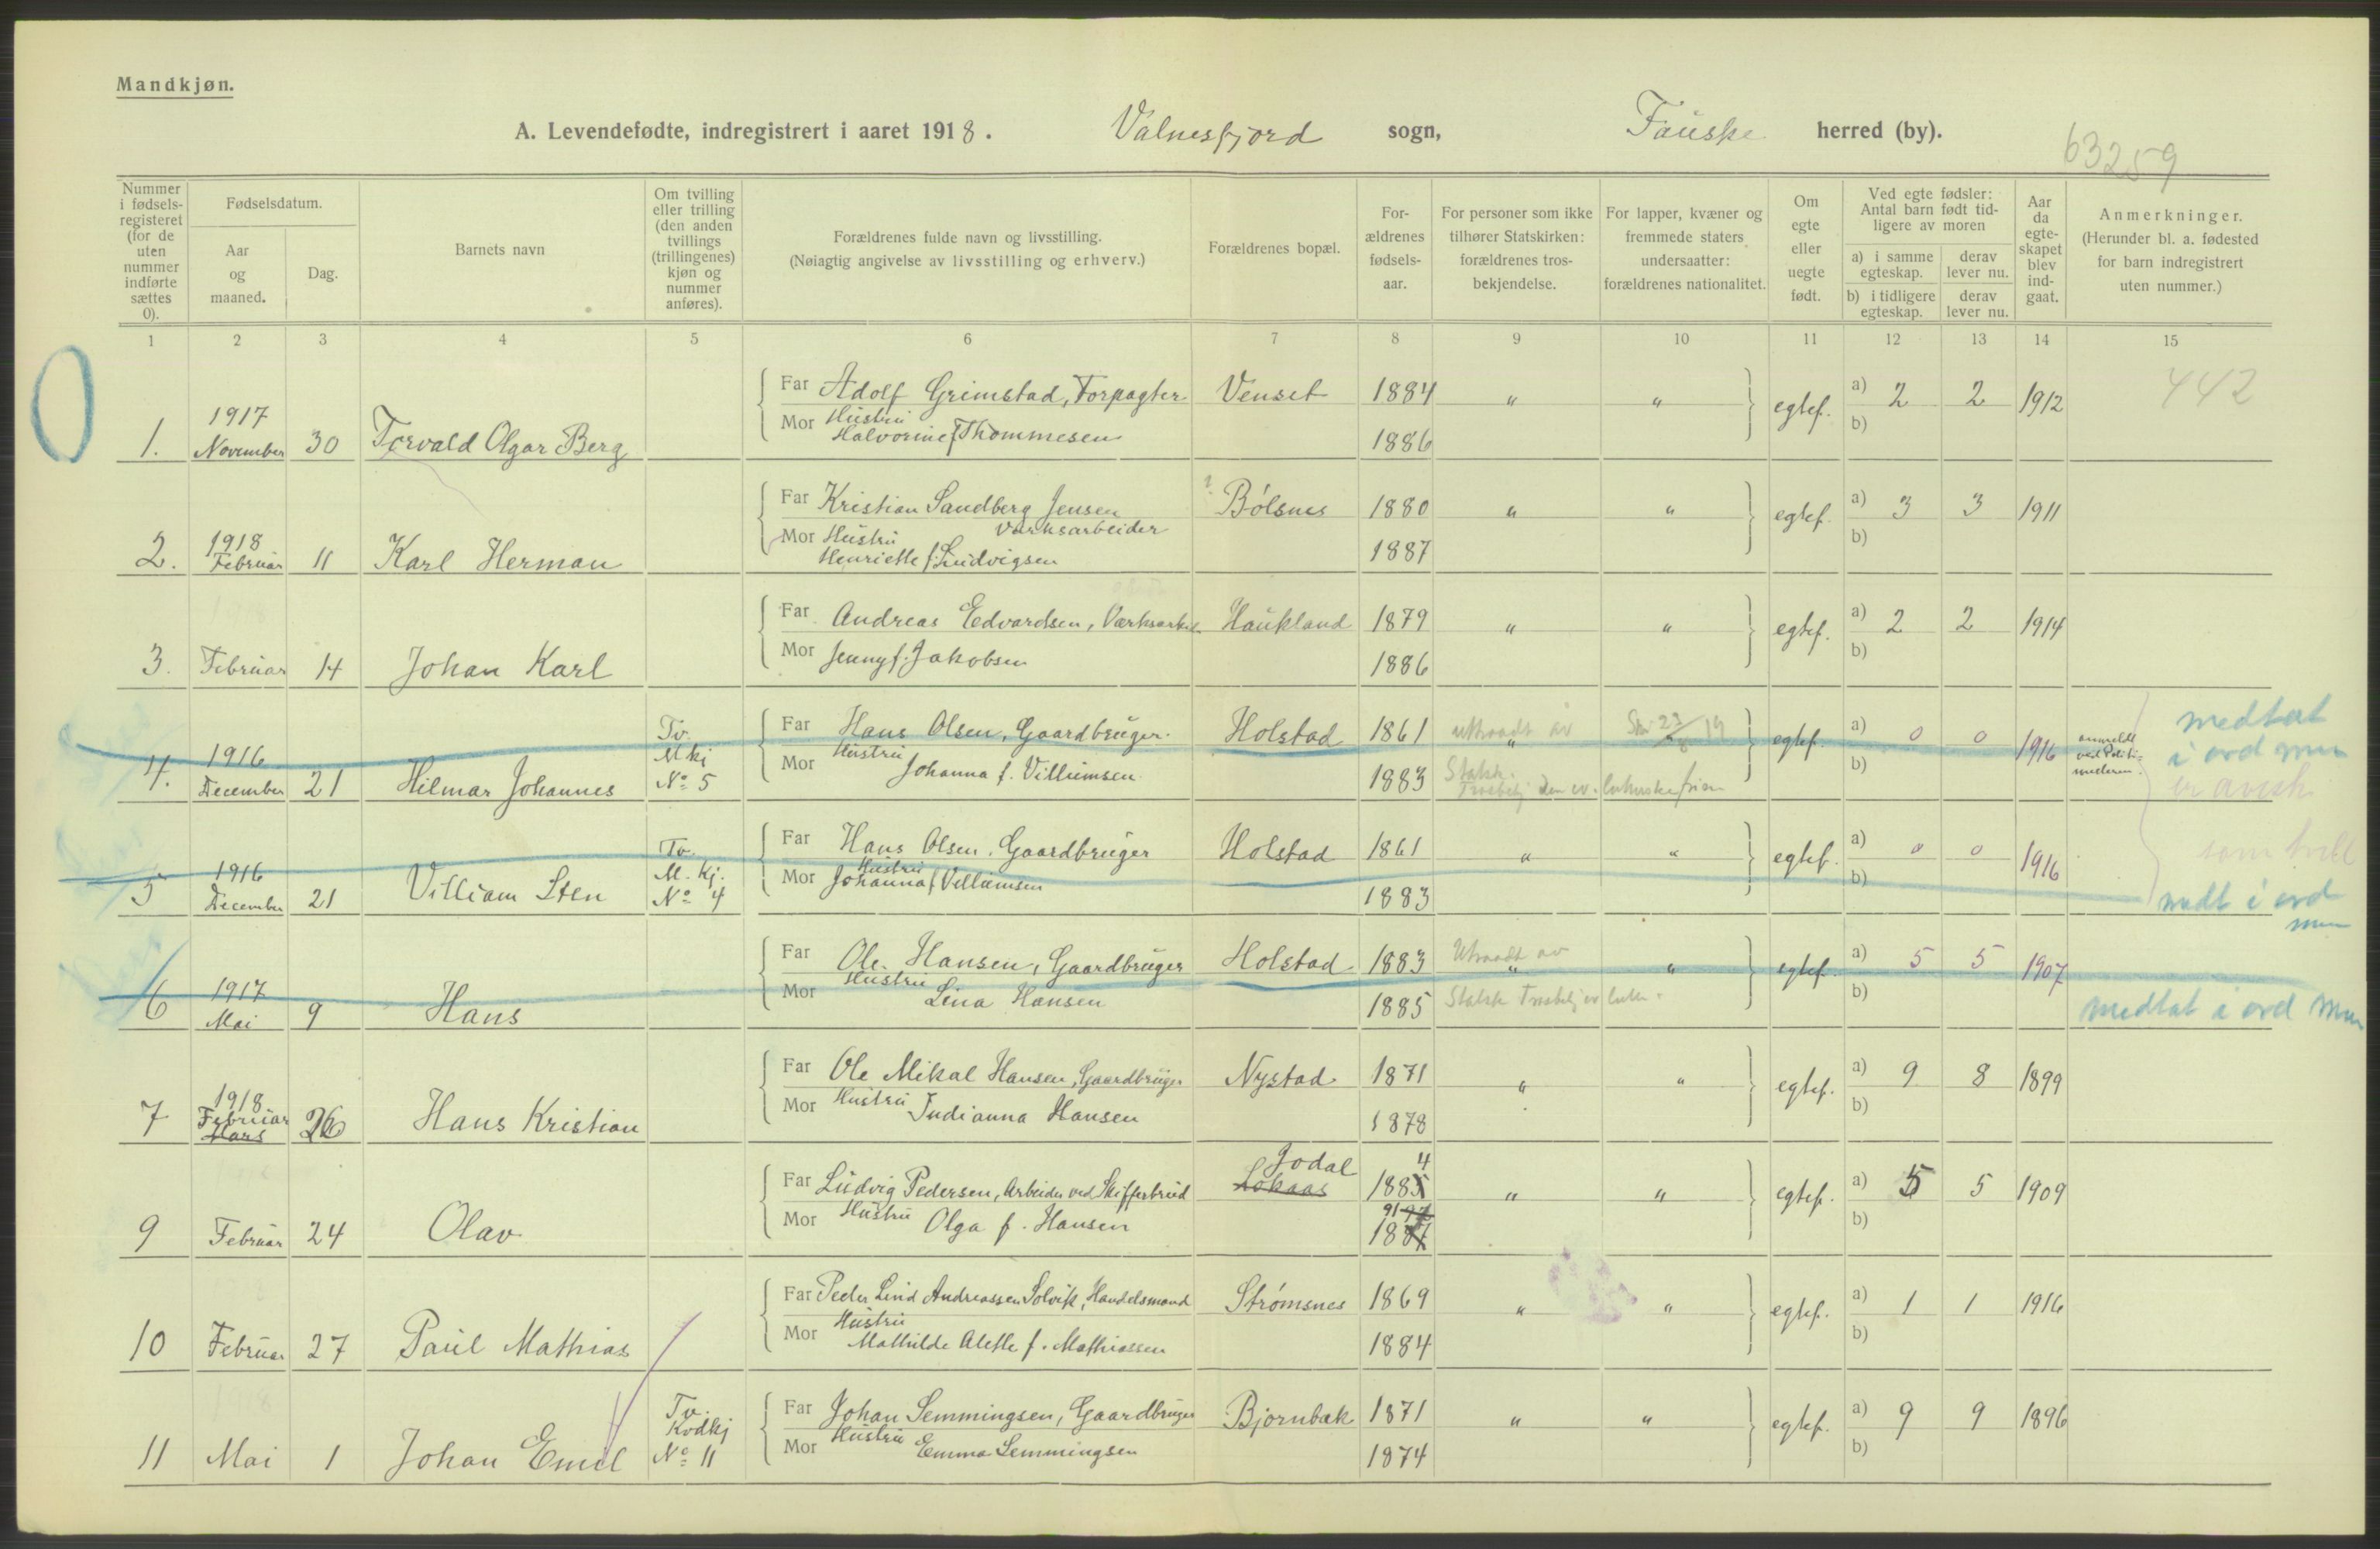 Mandkjøn.
A. Levendefødte, indregistrert i aaret 1918. Valnesfjord sogn, Fauske herred (by).
63259
Nummer i fødsels-registeret (for de uten nummer indførte sættes 0).
Fødselsdatum.
Aar og maaned.
Dag.
Barnets navn
Om tvilling eller trilling (den anden tvillings (trillingenes) kjøn og nummer anføres).
Forældrenes fulde navn og livsstilling.
(Nøiagtig angivelse av livsstilling og erhverv.)
Forældrenes bopæl.
For-ældrenes fødsels-aar.
For personer som ikke tilhører Statskirken: forældrenes tros-bekjendelse.
For lapper, kvæner og fremmede staters undersaatter: forældrenes nationalitet.
Om egte eller uegte født.
Ved egte fødsler: Antal barn født tid-ligere av moren
a) i samme egteskap.
derav lever nu.
b) i tidligere egteskap.
derav lever nu.
Aar da egte-skapet blev ind-gaat.
Anmerkninger.
(Herunder bl. a. fødested for barn indregistrert uten nummer.)
1 2 3 4 5 6 7 8 9 10 11 12 13 14 15
Far Adolf Grimstad, Forpagter Venset 1884 " " egtef. a) 2 2 1912 442
Mor Hustru Halvorine f Thommesen 1886 b)
1. 1917 November 30 Torvald Olgar Berg
Far Kristian Sandberg Jensen Bólsnes 1880 " " egtef. a) 3 3 1911
Værksarbeider
Mor Hustru Henriette f. Ludvigsen 1887 b)
2. 1918 Februar 11 Karl Herman
Far Andreas Edvardsen, Værksarbeid Haukland 1879 " " egtef. a) 2 2 1914
Mor Jenny f. Jakobsen 1886 b)
3. Februar 14 Johan Karl
Far Hans Olsen, Gaardbruger. Holstad 1861 uttraadt av " egtef. a) 0 0 1916 anmeldt ved Politi= mesteren. medtat i ord mun
Mor Hustru Johanna f. Villumsen 1883 Statsk. Trosbekj den ev. lutherske fri b)
4. 1916 December 21 Hilmar Johannes Tv. Mkj No 5
Far Hans Olsen, Gaardbruger Holstad 1861 " " egtef. a) 0 0 1916
Mor Hustru Johanna f Villumsen 1883 b) medt i ord mun
5 1916 December 21 Villiam Sten Tv. M. Kj. No 4
Far Ole Hansen, Gaardbruger Holstad 1883 Utraadt av " " egtef. a) 5 5 1907
Mor Hustru Lina Hansen 1885 Statsk Trosbekj ev luth. b) medtat i ord mun
6 1917 Mai 9 Hans
Far Ole Mikal Hansen, Gaardbruger Nystad 1871 " " egtef. a) 9 8 1899
Mor Hustru Indianna Hansen 1878 b)
7 1918 Februar Mars 26 Hans Kristian
Far Ludvig Pedersen, Arbeider ved Skifferbrud Jodal Lokaas 1884 " " egtef. a) 5 5 1909
Mor Hustru Olga f. Hansen 1891 b)
9 Februar 24 Olav
Far Peder Lind Andreassen Solvik, Handelsmand Strómsnes 1869 " " egtef. a) 1 1 1916
Mor Hustru Mathilde Alette f. Mathiassen 1884 b)
10 Februar 27 Paul Mathias
Far Johan Semmingsen, Gaardbruger Bjornbak 1871 " " egtef. a) 9 9 1896
Mor Hustru Emma Semmingsen 1874 b)
11 Mai 1 Johan Emil Tv. Kvdkj No 11